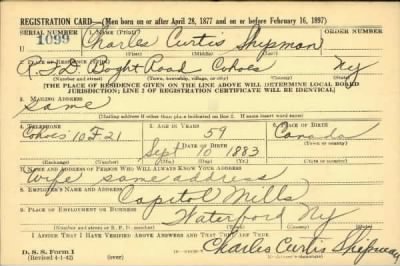 REGISTRATION CARD—(Men born on or after April 28, 1877 and on or before February 16, 1897)
SERIAL NUMBER 1. NAME (Print) ORDER NUMBER
1099 Charles Curtis Shipman
(First) (Middle) (Last)
2. PLACE OF RESIDENCE (Print)
R.F.D. Boght Road Cohoes NY
(Number and street) (Town, township, village, or city) (County) (State)
[THE PLACE OF RESIDENCE GIVEN ON THE LINE ABOVE WILL DETERMINE LOCAL BOARD
JURISDICTION; LINE 2 OF REGISTRATION CERTIFICATE WILL BE IDENTICAL]
3. MAILING ADDRESS
Same
(Mailing address if other than place indicated on line 2. If same insert word same)
4. TELEPHONE 5. AGE IN YEARS 6. PLACE OF BIRTH
Cohoes 10F21 59 Canada
DATE OF BIRTH (Town or county)
Sept 10 1883
(Exchange) (Number) (Mo.) (Day) (Yr.) (State or country)
7. NAME AND ADDRESS OF PERSON WHO WILL ALWAYS KNOW YOUR ADDRESS
Wife same address
8. EMPLOYER'S NAME AND ADDRESS
Capitol Mills
9. PLACE OF EMPLOYMENT OR BUSINESS
Waterford NY
(Number and street or R. F. D. number) (Town) (County) (State)
I AFFIRM THAT I HAVE VERIFIED ABOVE ANSWERS AND THAT THEY ARE TRUE.
D. S. S. Form 1
(Revised 4-1-42) Charles Curtis Shipman